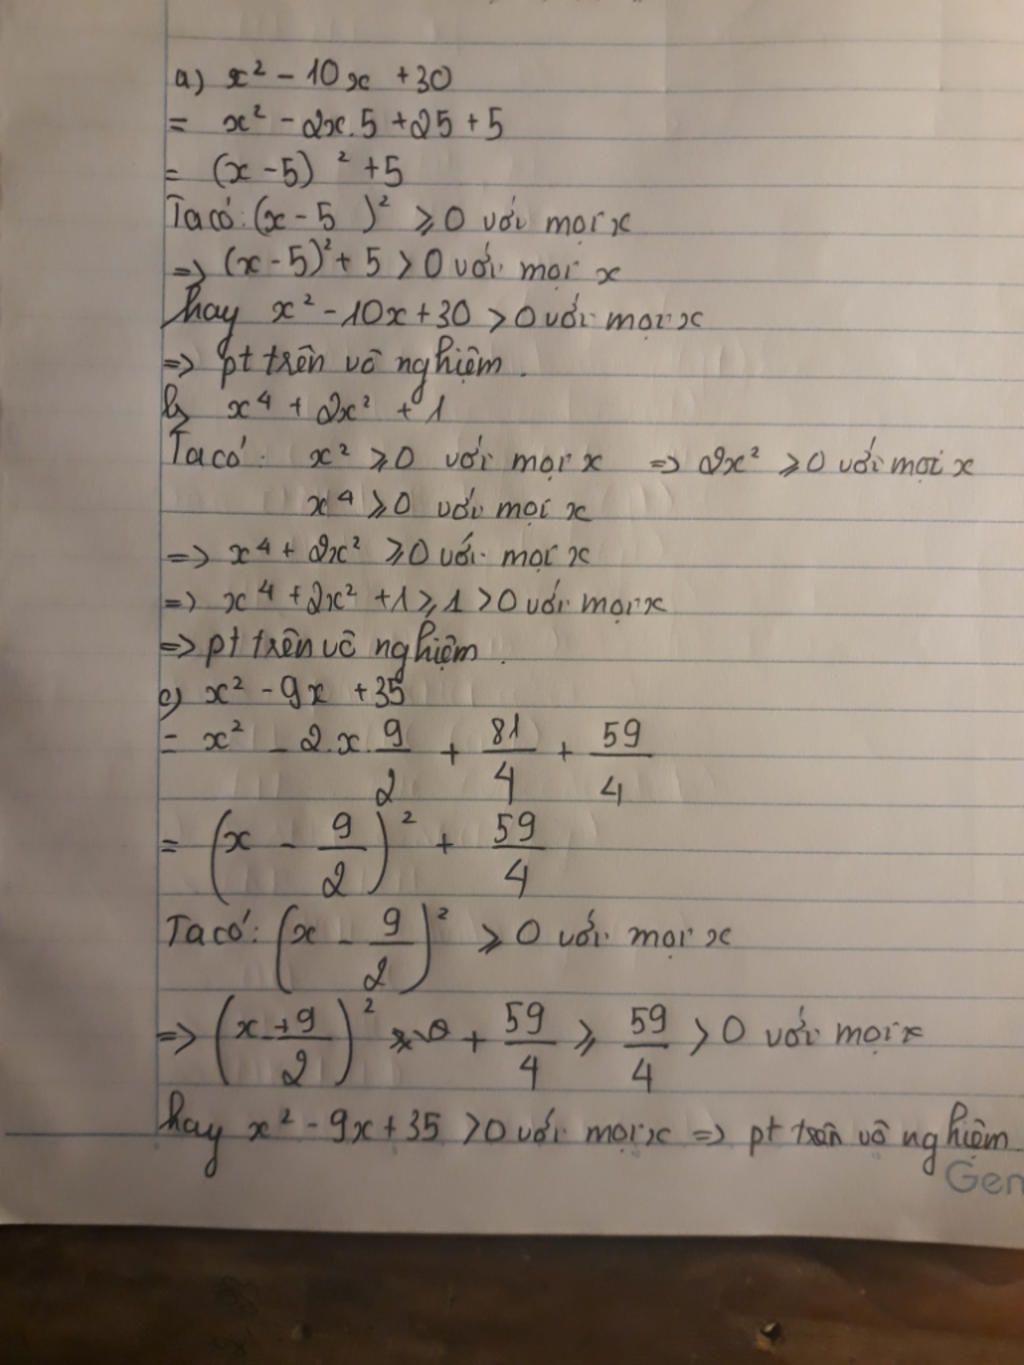 a) x² - 10x + 30
= x² - 2x.5 + 25 + 5
= (x - 5)² + 5
Ta có: (x - 5)² ⩾ 0 với mọi x
=> (x - 5)² + 5 > 0 với mọi x
hay x² - 10x + 30 > 0 với mọi x
=> pt trên vô nghiệm.
b, x⁴ + 2x² + 1
Ta có: x² ⩾ 0 với mọi x => 2x² ⩾ 0 với mọi x
x⁴ ⩾ 0 với mọi x
=> x⁴ + 2x² ⩾ 0 với mọi x
=> x⁴ + 2x² + 1 ⩾ 1 > 0 với mọi x
=> pt trên vô nghiệm.
c) x² - 9x + 35
= x² - 2.x.9/2 + 81/4 + 59/4
= (x - 9/2)² + 59/4
Ta có: (x - 9/2)² ⩾ 0 với mọi x
=> (x - 9/2)² + 59/4 ⩾ 59/4 > 0 với mọi x
hay x² - 9x + 35 > 0 với mọi x => pt trên vô nghiệm
Gen